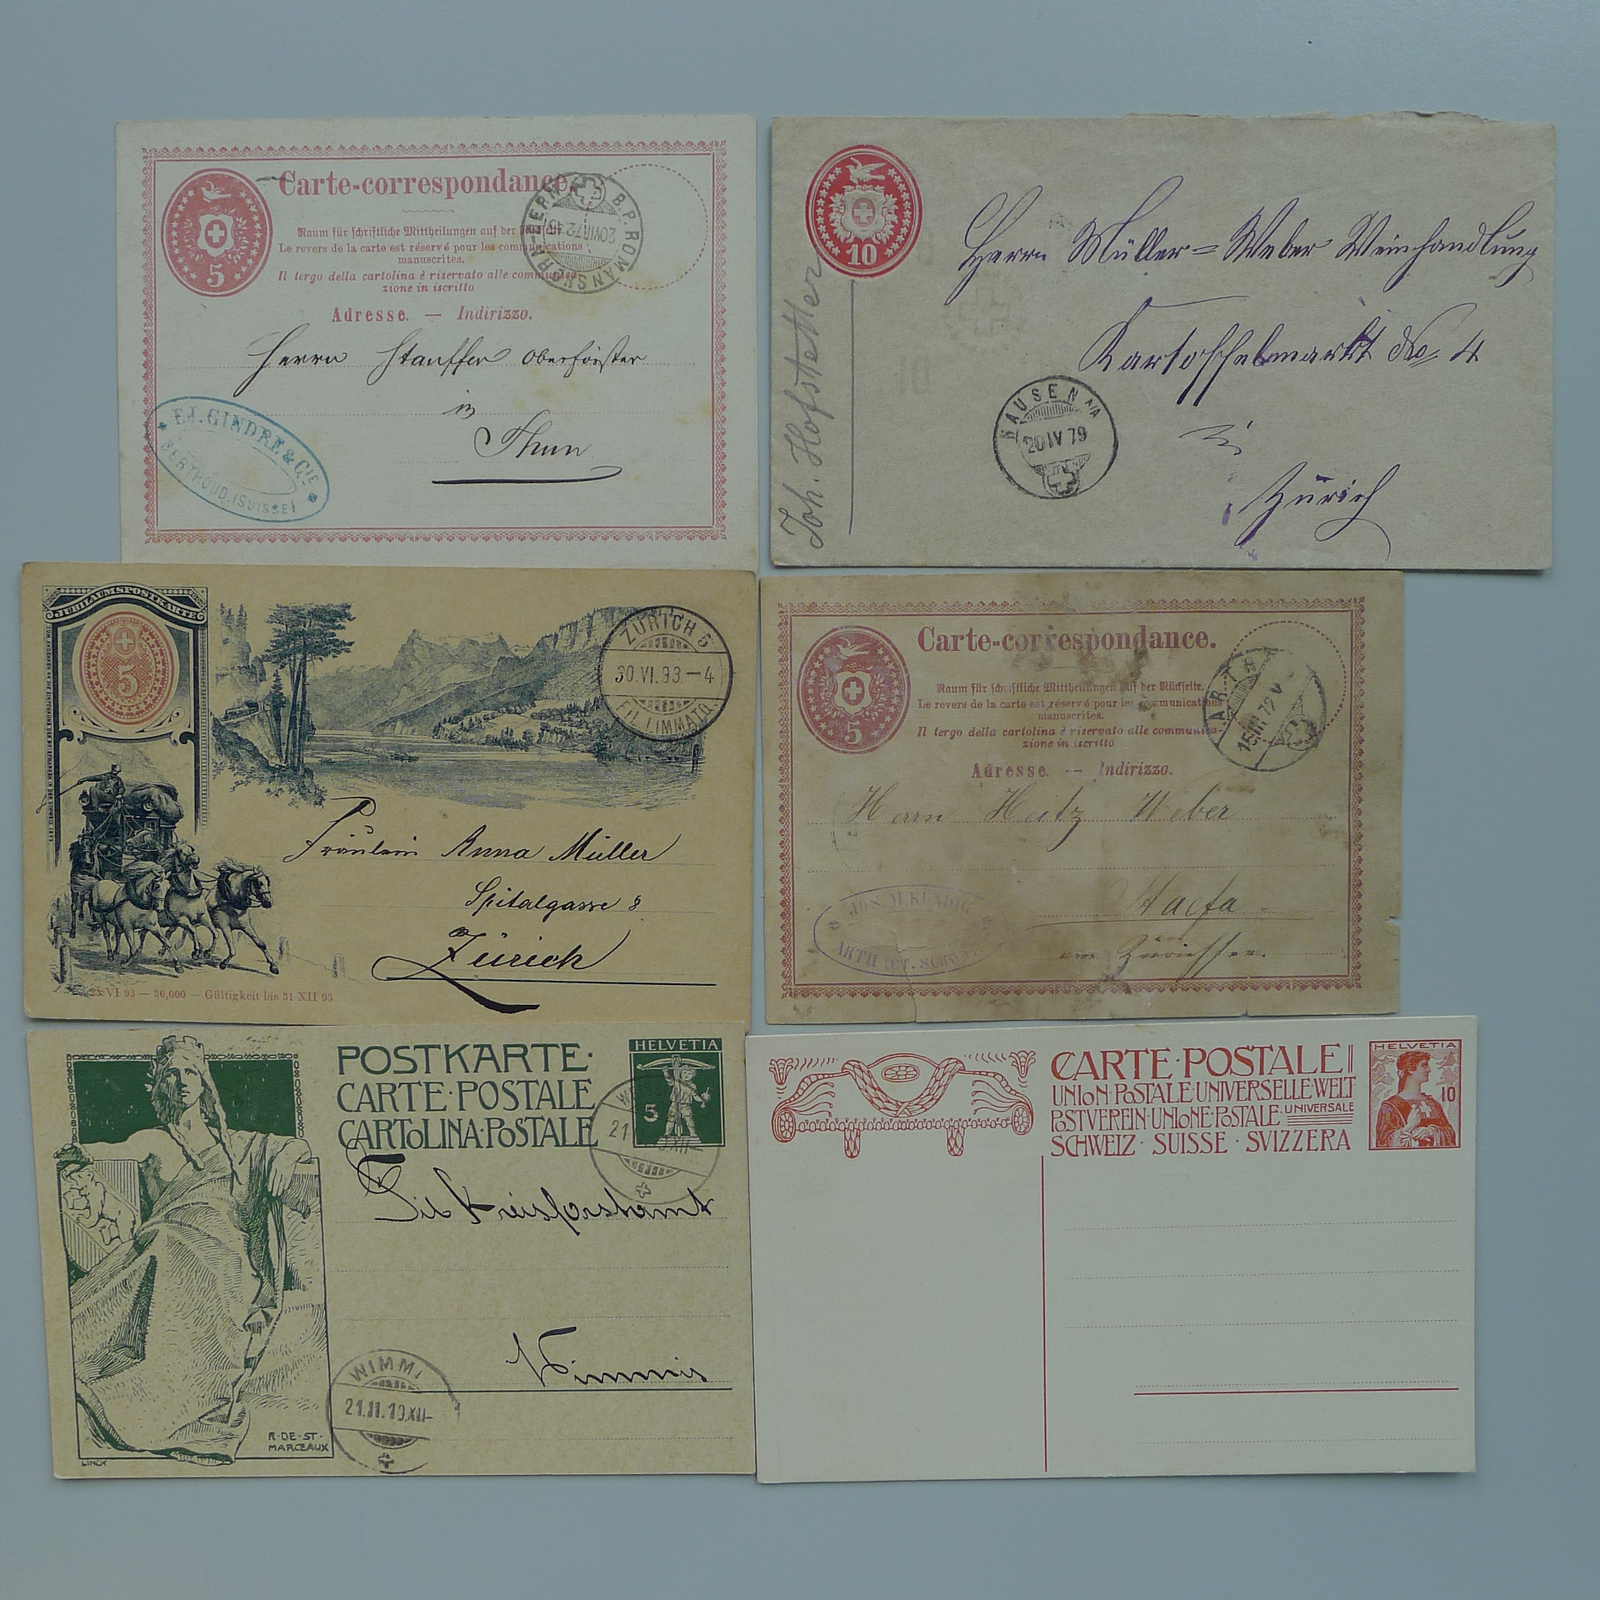 Carte-correspondance.
Raum für schriftliche Mittheilungen auf der
Le revers de la carte est réservé pour les communications
manuscrites.
Il tergo della cartolina è riservato alle communica-
zione in iscritto
Adresse. — Indirizzo.
5
B.P. ROMANSH
20 VIII 72
Herrn Stauffer Oberförster
in
Thun
EJ. GINDRE & CIE
BERTHOUD. (SUISSE)
10
Herrn Müller-Weber Weinhandlung
Kartoffelmarkt No 4
in
Zürich
HAUSEN A/A
20 IV 79
Joh. Hofstetter
JUBILÄUMSPOSTKARTE
5
ZÜRICH 5
30.VI.93.–4
FIL. LIMMATQ.
Fräulein Anna Müller
Spitalgasse 8
Zürich
VI 93 — 50,000 — Gültigkeit bis 31 XII 93
Carte-correspondance.
Raum für schriftliche Mittheilungen auf der Rückseite.
Le revers de la carte est réservé pour les communications
manuscrites.
Il tergo della cartolina è riservato alle communica-
zione in iscritto
Adresse. — Indirizzo.
5
ARTH
Herrn Heitz Weber
Staefa
am Zürichsee.
JOS. M. KÜNDIG
POSTKARTE·
CARTE·POSTALE
CARTOLINA·POSTALE
HELVETIA
5
Kreisforstamt
Wimmis
WIMMI
21.II.10.XII–
R·DE·ST·
MARCEAUX
CARTE·POSTALE
UNION·POSTALE·UNIVERSELLE·WELT
POSTVEREIN·UNIONE·POSTALE·UNIVERSALE
SCHWEIZ·SUISSE·SVIZZERA
HELVETIA
10